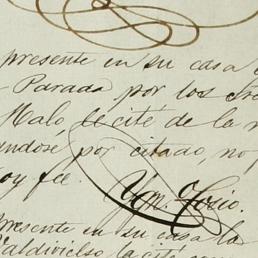 presente en su casa
Parada por los
Malo le cité de la
por citado, no
doy fee.
presente en su casa la
Valdivielso la cité